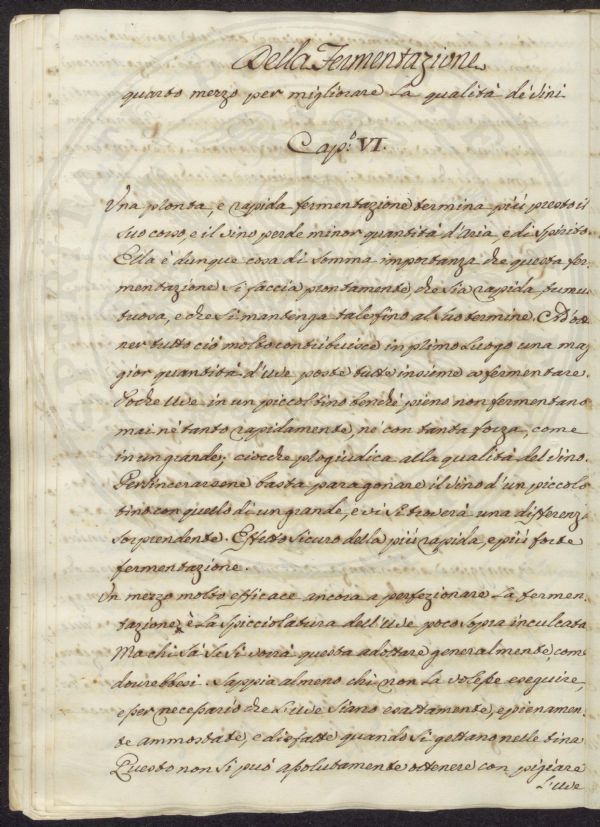 Della Fermentazione
quarto mezzo per migliorare la qualità de' vini
Cap.º VI.
Una pronta, e rapida fermentazione termina più presto il
suo corso, e il vino perde minor quantità d'aria e di spirito.
Ella è dunque cosa di somma importanza che questa fer-
mentazione si faccia prontamente, che sia rapida, tumul-
tuosa, e che si mantenga tale sino al suo termine. Ad ot-
ner tutto ciò molto contribuisce in primo luogo una mag-
gior quantità d'uve poste tutte insieme a fermentare.
Poche uve in un piccol tino benché pieno non fermentano
mai né tanto rapidamente, né con tanta forza, come
in un grande; ciocche pregiudica alla qualità del vino.
Per sincerarsene basta paragonare il vino d'un piccolo
tino con quello di un grande, e vi si troverà una differenza
sorprendente. Effetto sicuro della più rapida, e più forte
fermentazione.
Un mezzo molto efficace ancora a perfezionare la fermen-
tazione è la spicciolatura dell'uve poco sopra inculcata
Ma chi sà se si vorrà questa adottare generalmente, come
dovrebbesi. Sappia almeno chi non la volesse eseguire,
esser necessario che l'uve siano esattamente, e pienamen-
te ammostate, e disfatte quando si gettano nelle tina
Questo non si può assolutamente ottenere con pigiare
l'uve